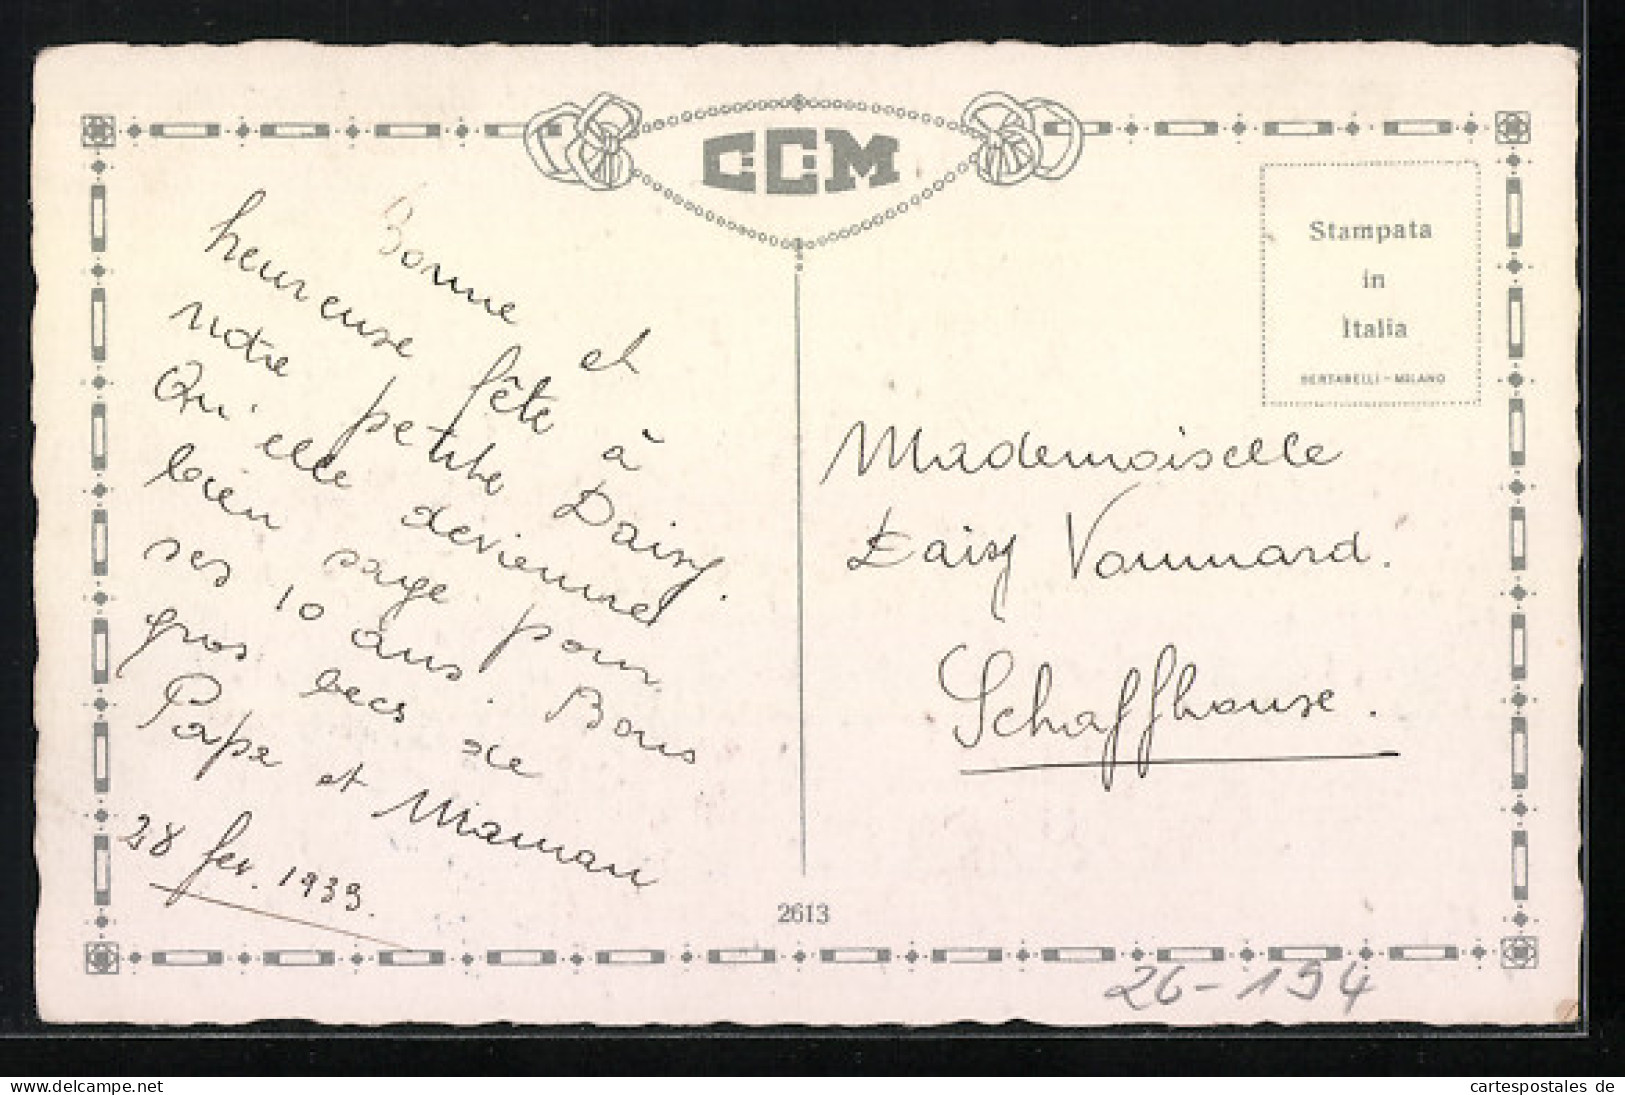 CCM
Bonne et
heureuse fête à
notre petite Daisy.
Qu'elle devienne
bien sage pour
ses 10 ans. Bons
gros becs de
Papa et Maman
28 fev. 1939.
Stampata
in
Italia
BERTARELLI - MILANO
Mademoiselle
Daisy Vonnard.
Schaffhouse.
2613
26-194
www.delcampe.net
cartespostales_de